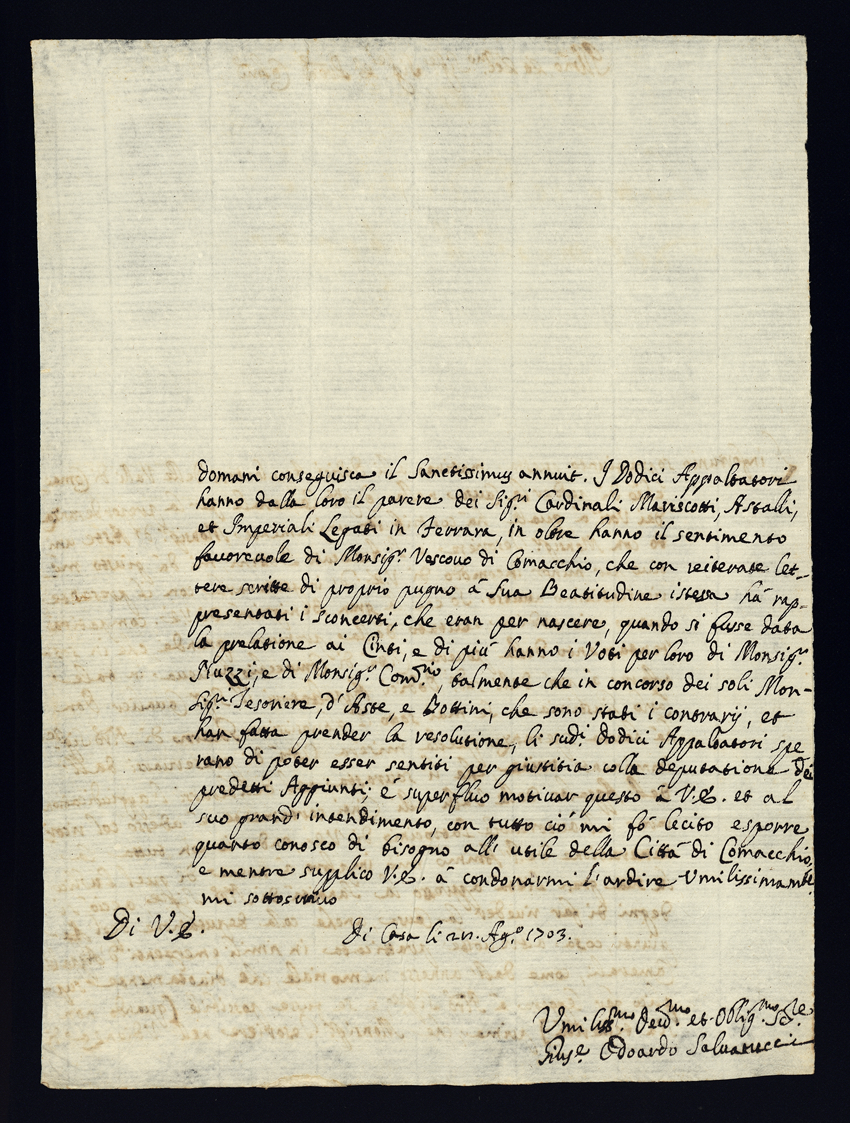 domani conseguisca il Sanctissimus annuit. I Dodici Appaltatori
hanno dalla loro il parere dei Sig.ri Cardinali Mariscotti, Astalli,
et Imperiali Legati in Ferrara, in oltre hanno il sentimento
favorevole di Monsig.r Vescovo di Comacchio, che con reiterate let-
tere scritte di proprio pugno à Sua Beatitudine istessa hà rap-
presentati i sconcerti, che eran per nascere, quando si fusse data
la prelatione ai Cinti, e di più hanno i Voti per loro di Monsig.r
Nuzzi, e di Monsig.r Com.rio, talmente che in concorso dei soli Mon-
sig.ri Tesoriere, d'Aste, e Bottini, che sono stati i contrarij, et
han fatta prender la resolutione, li sud.i dodici Appaltatori spe
rano di poter esser sentiti per giustitia colla deputatione dei
predetti Aggiunti; è superfluo motivar questo à V.E. et al
suo grand' intendimento, con tutto ciò mi fò lecito esporre
quanto conosco di bisogno all' utile della Città di Comacchio,
e mentre supplico V.E. à condonarmi l'ardire Umilissimam.te
mi sottoscrivo
Di V.E. Di Casa li Ag.o 1703.
Umiliss.mo Dev.mo et Oblig.mo
Gius.e Odoardo Salvatucci